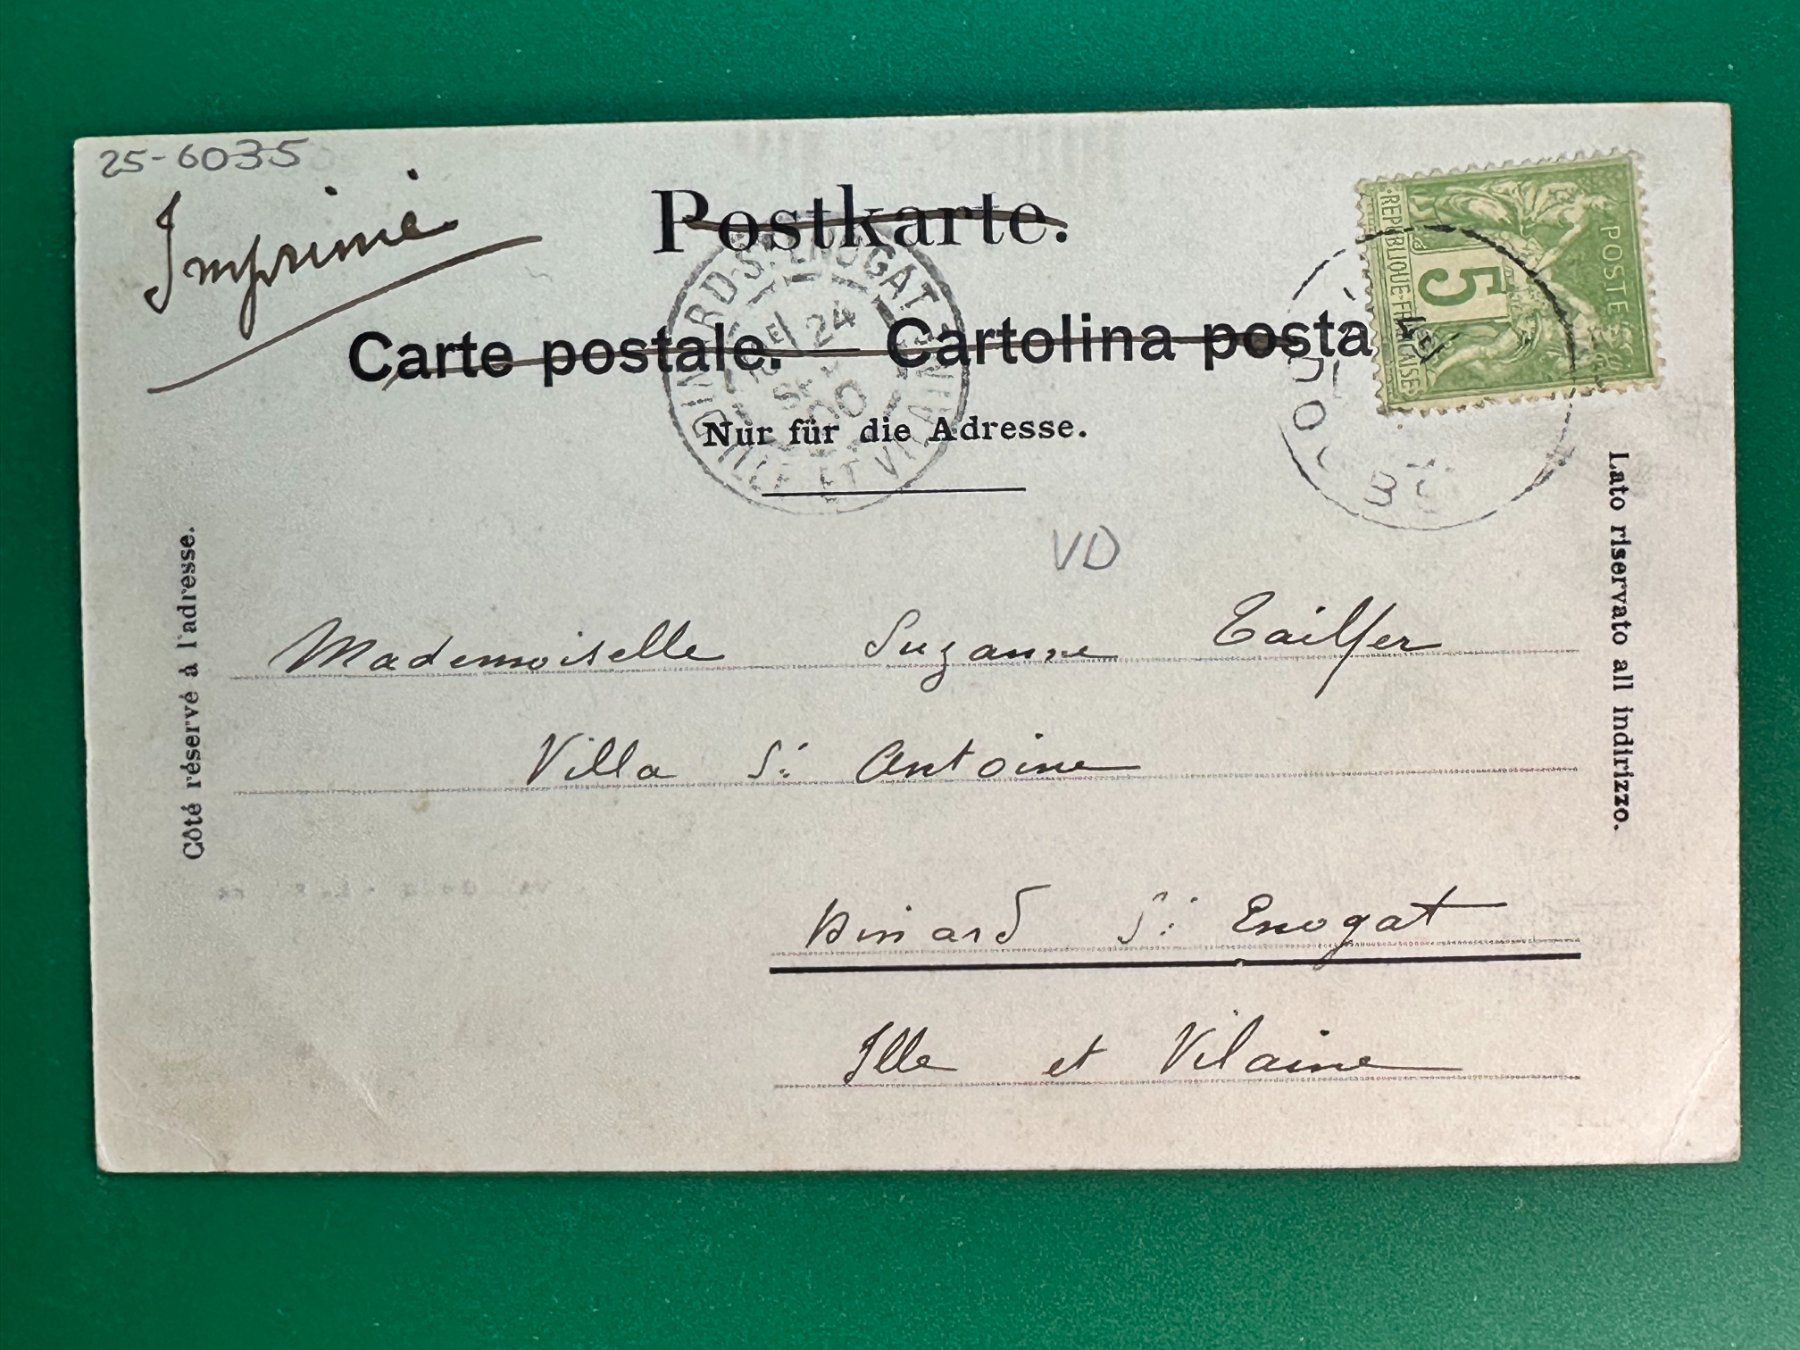 25-6035
Imprimé
Postkarte.
Carte postale. Cartolina posta
Nur für die Adresse.
DINARD-ST ENOGAT
ILLE ET VILAINE
24
00
REPUBLIQUE FRANCAISE
5
POSTES
VD
Côté réservé à l'adresse.
Lato riservato all indirizzo.
Mademoiselle Suzanne Tailfer
Villa St Antoine
Dinard St Enogat
Ille et Vilaine